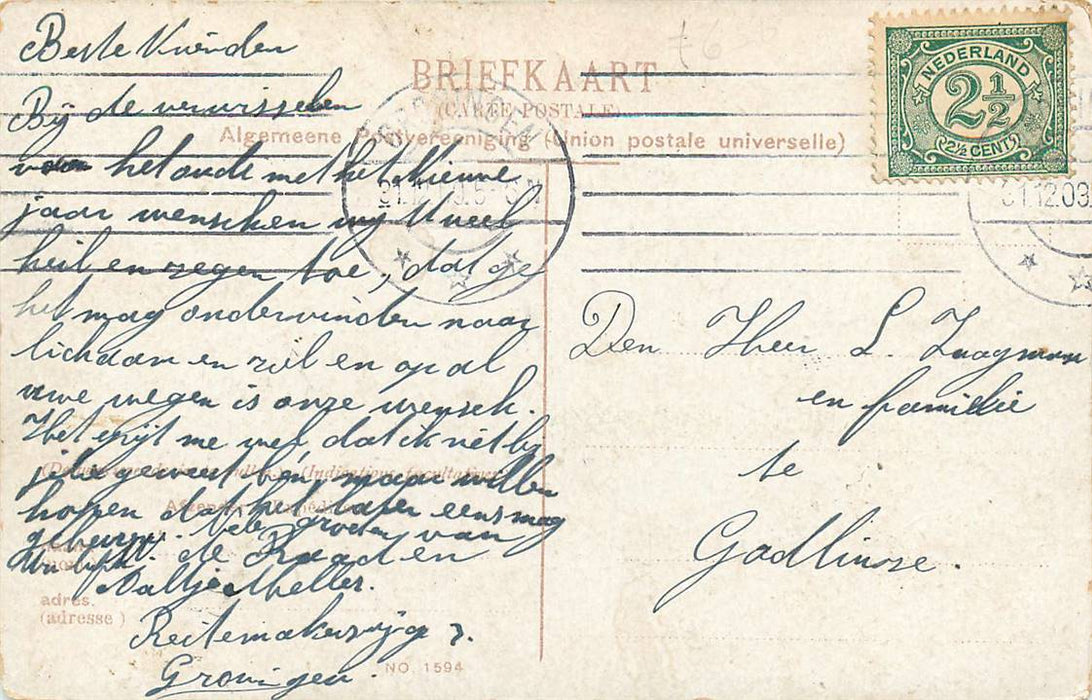 Beste Vrienden
Bij de verwisselen
van het oude met het Nieuwe
jaar wenschen wij U veel
heil en zegen toe, dat ge
het mag ondervinden naar
lichaam en ziel en op al
uwe wegen is onze wensch.
Het spijt me wel dat ik niet bij
jelie geweest ben, maar willen
hopen dat het later eens mag
gebeuren. vele groeten van
de Raad en
Aaltje Meller.
Reitemakersrijge 7.
Groningen.
BRIEFKAART
(CARTE POSTALE)
Algemeene Postvereeniging (Union postale universelle)
NEDERLAND
2½
(2½ CENT)
31.12.09
Den Heer L. Zaagman
en familie
te
Godlinze.
(Indications facultatives)
adres.
(adresse)
NO. 1594